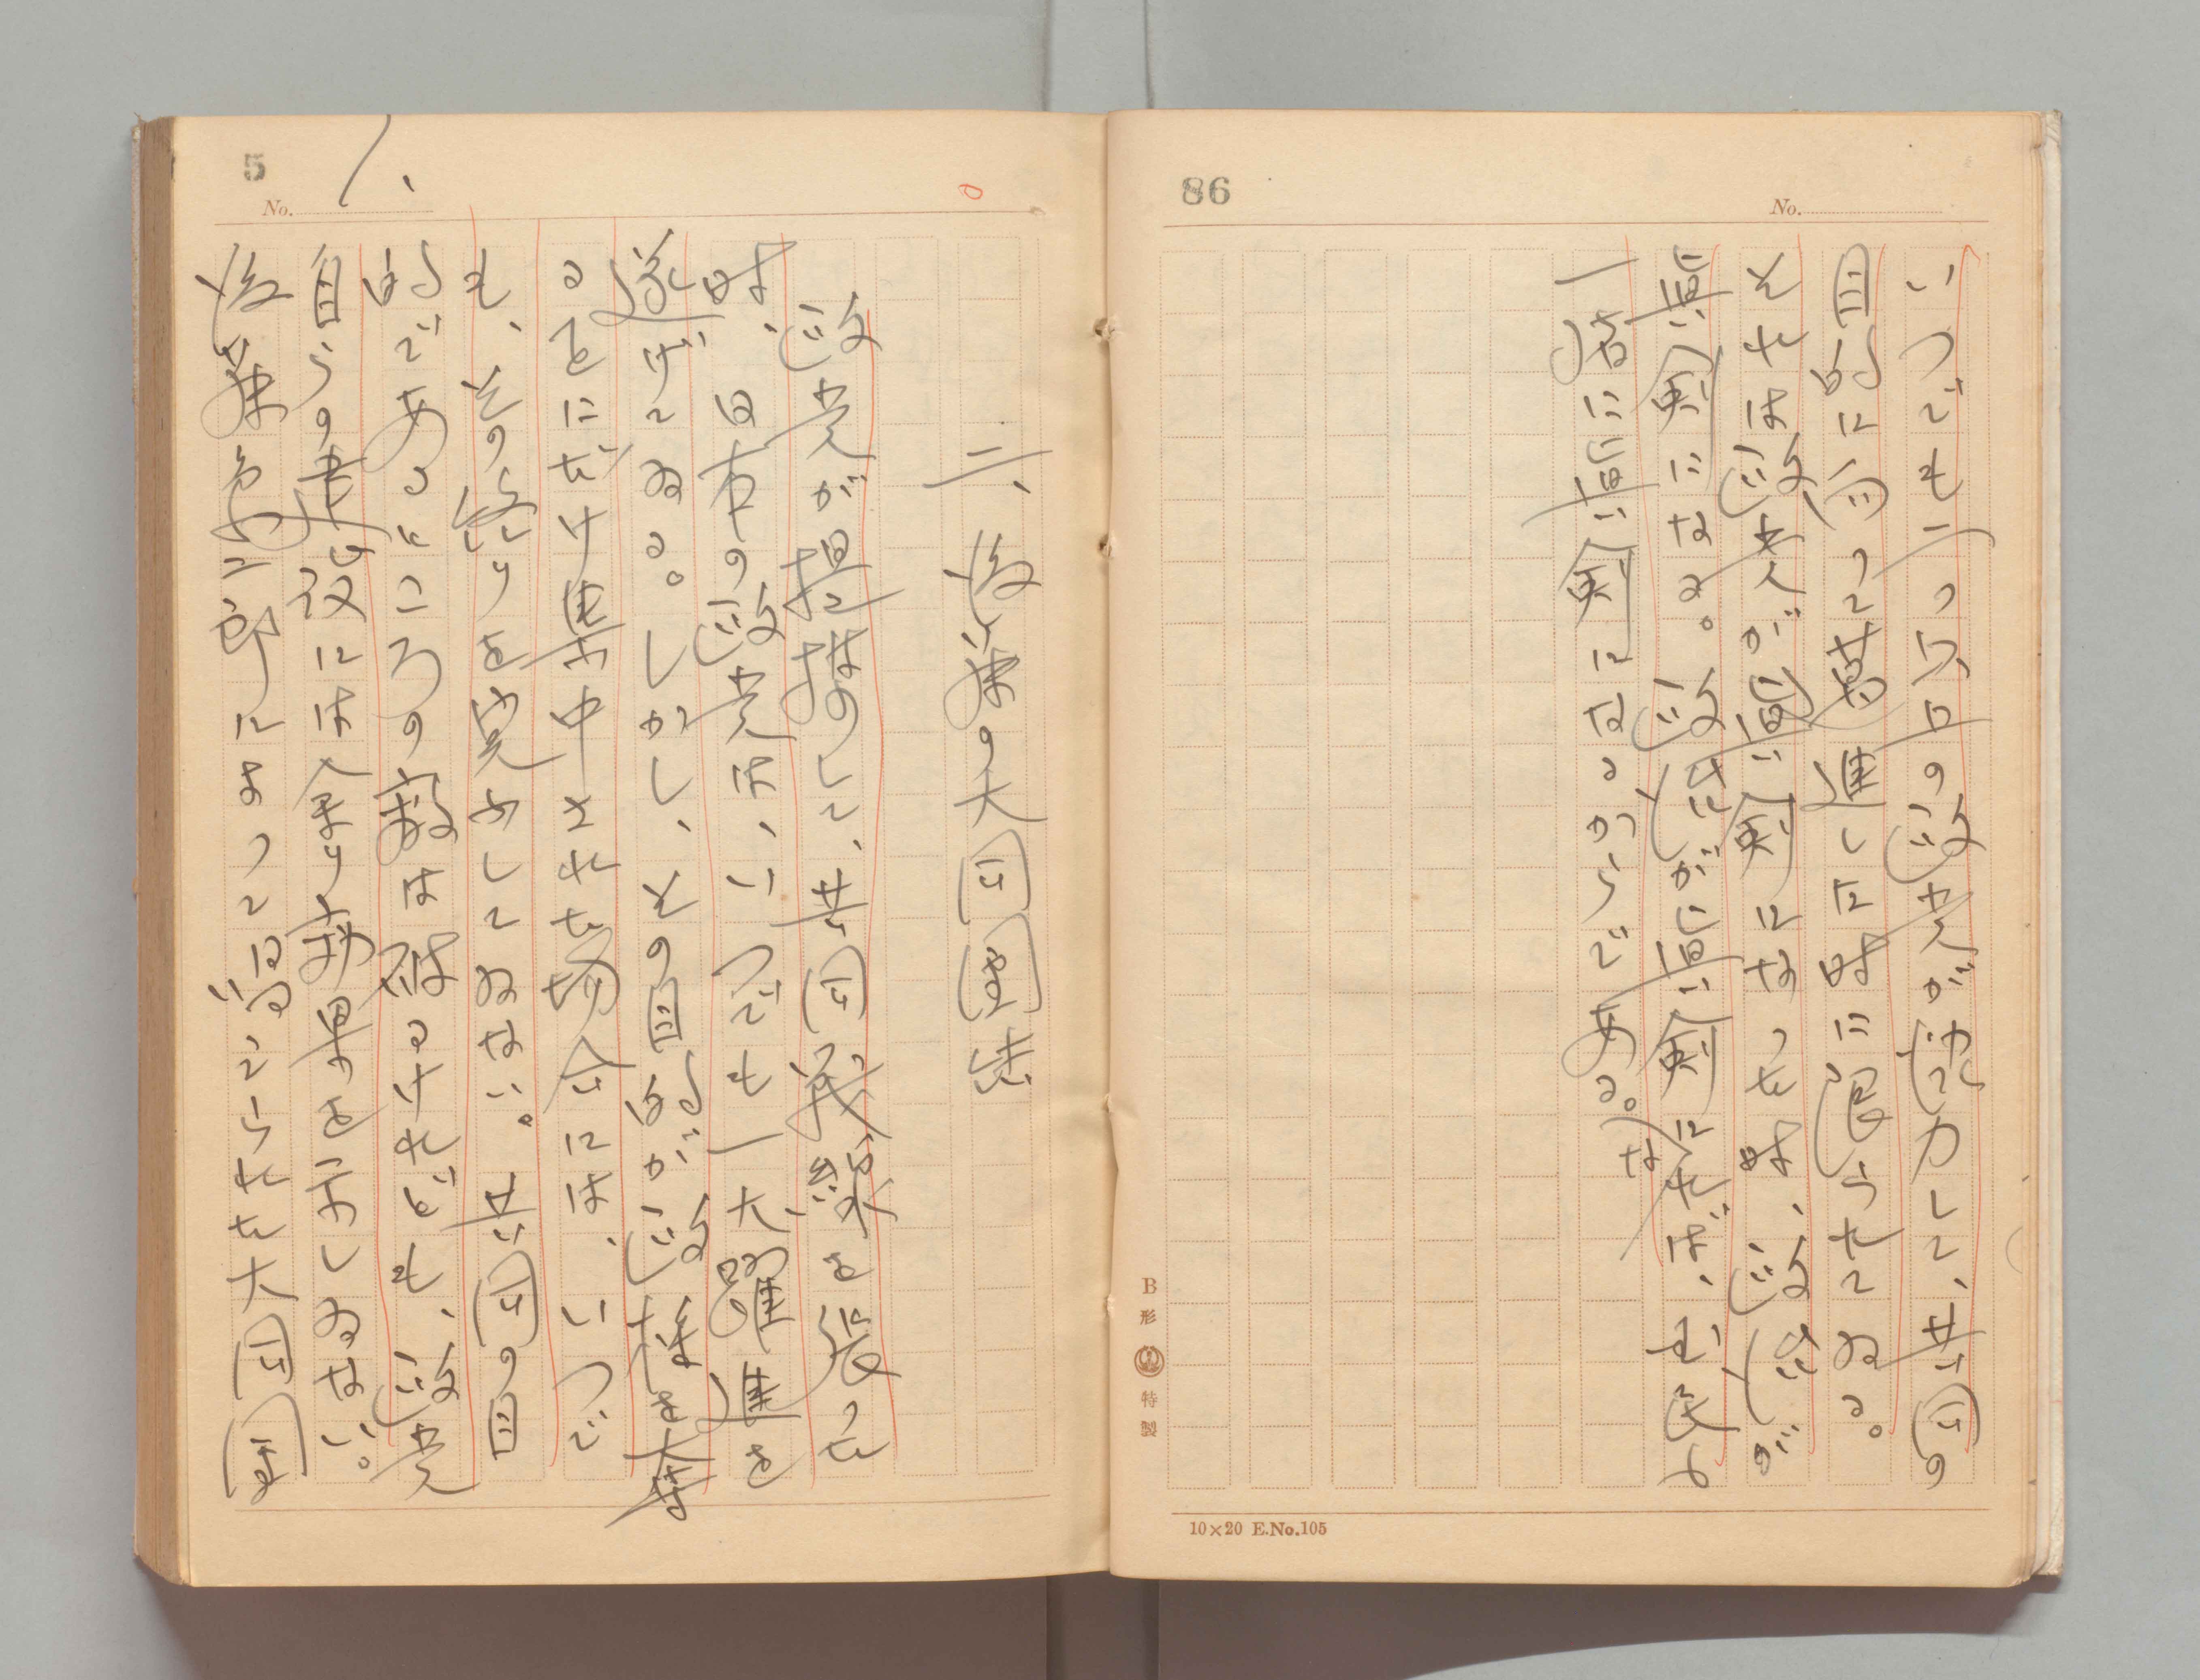 86
No.
いつでも二つ以上の政党が協力して、共同の
目的に向つて驀進した時に限られてゐる。
それは政党が真剣になつた時、政治が
真剣になる。政治が真剣になれば、国民も
一諸に真剣になるからである。
B形 特製
10×20 E.No.105
5
No.
1、
二、後藤の大同団結
政党が提携して、共同戦線を張つた
時、日本の政党は、いつでも一大躍進を
遂げてゐる。しかし、その目的が政権を奪
ることにだけ集中された場合には、いつで
も、その終りを完ふしてゐない。共同の目
的であるところの敵は破るけれども、政党
自らの建設には余り効果を示しゐない。
後藤象二郎によつて唱へられた大同団